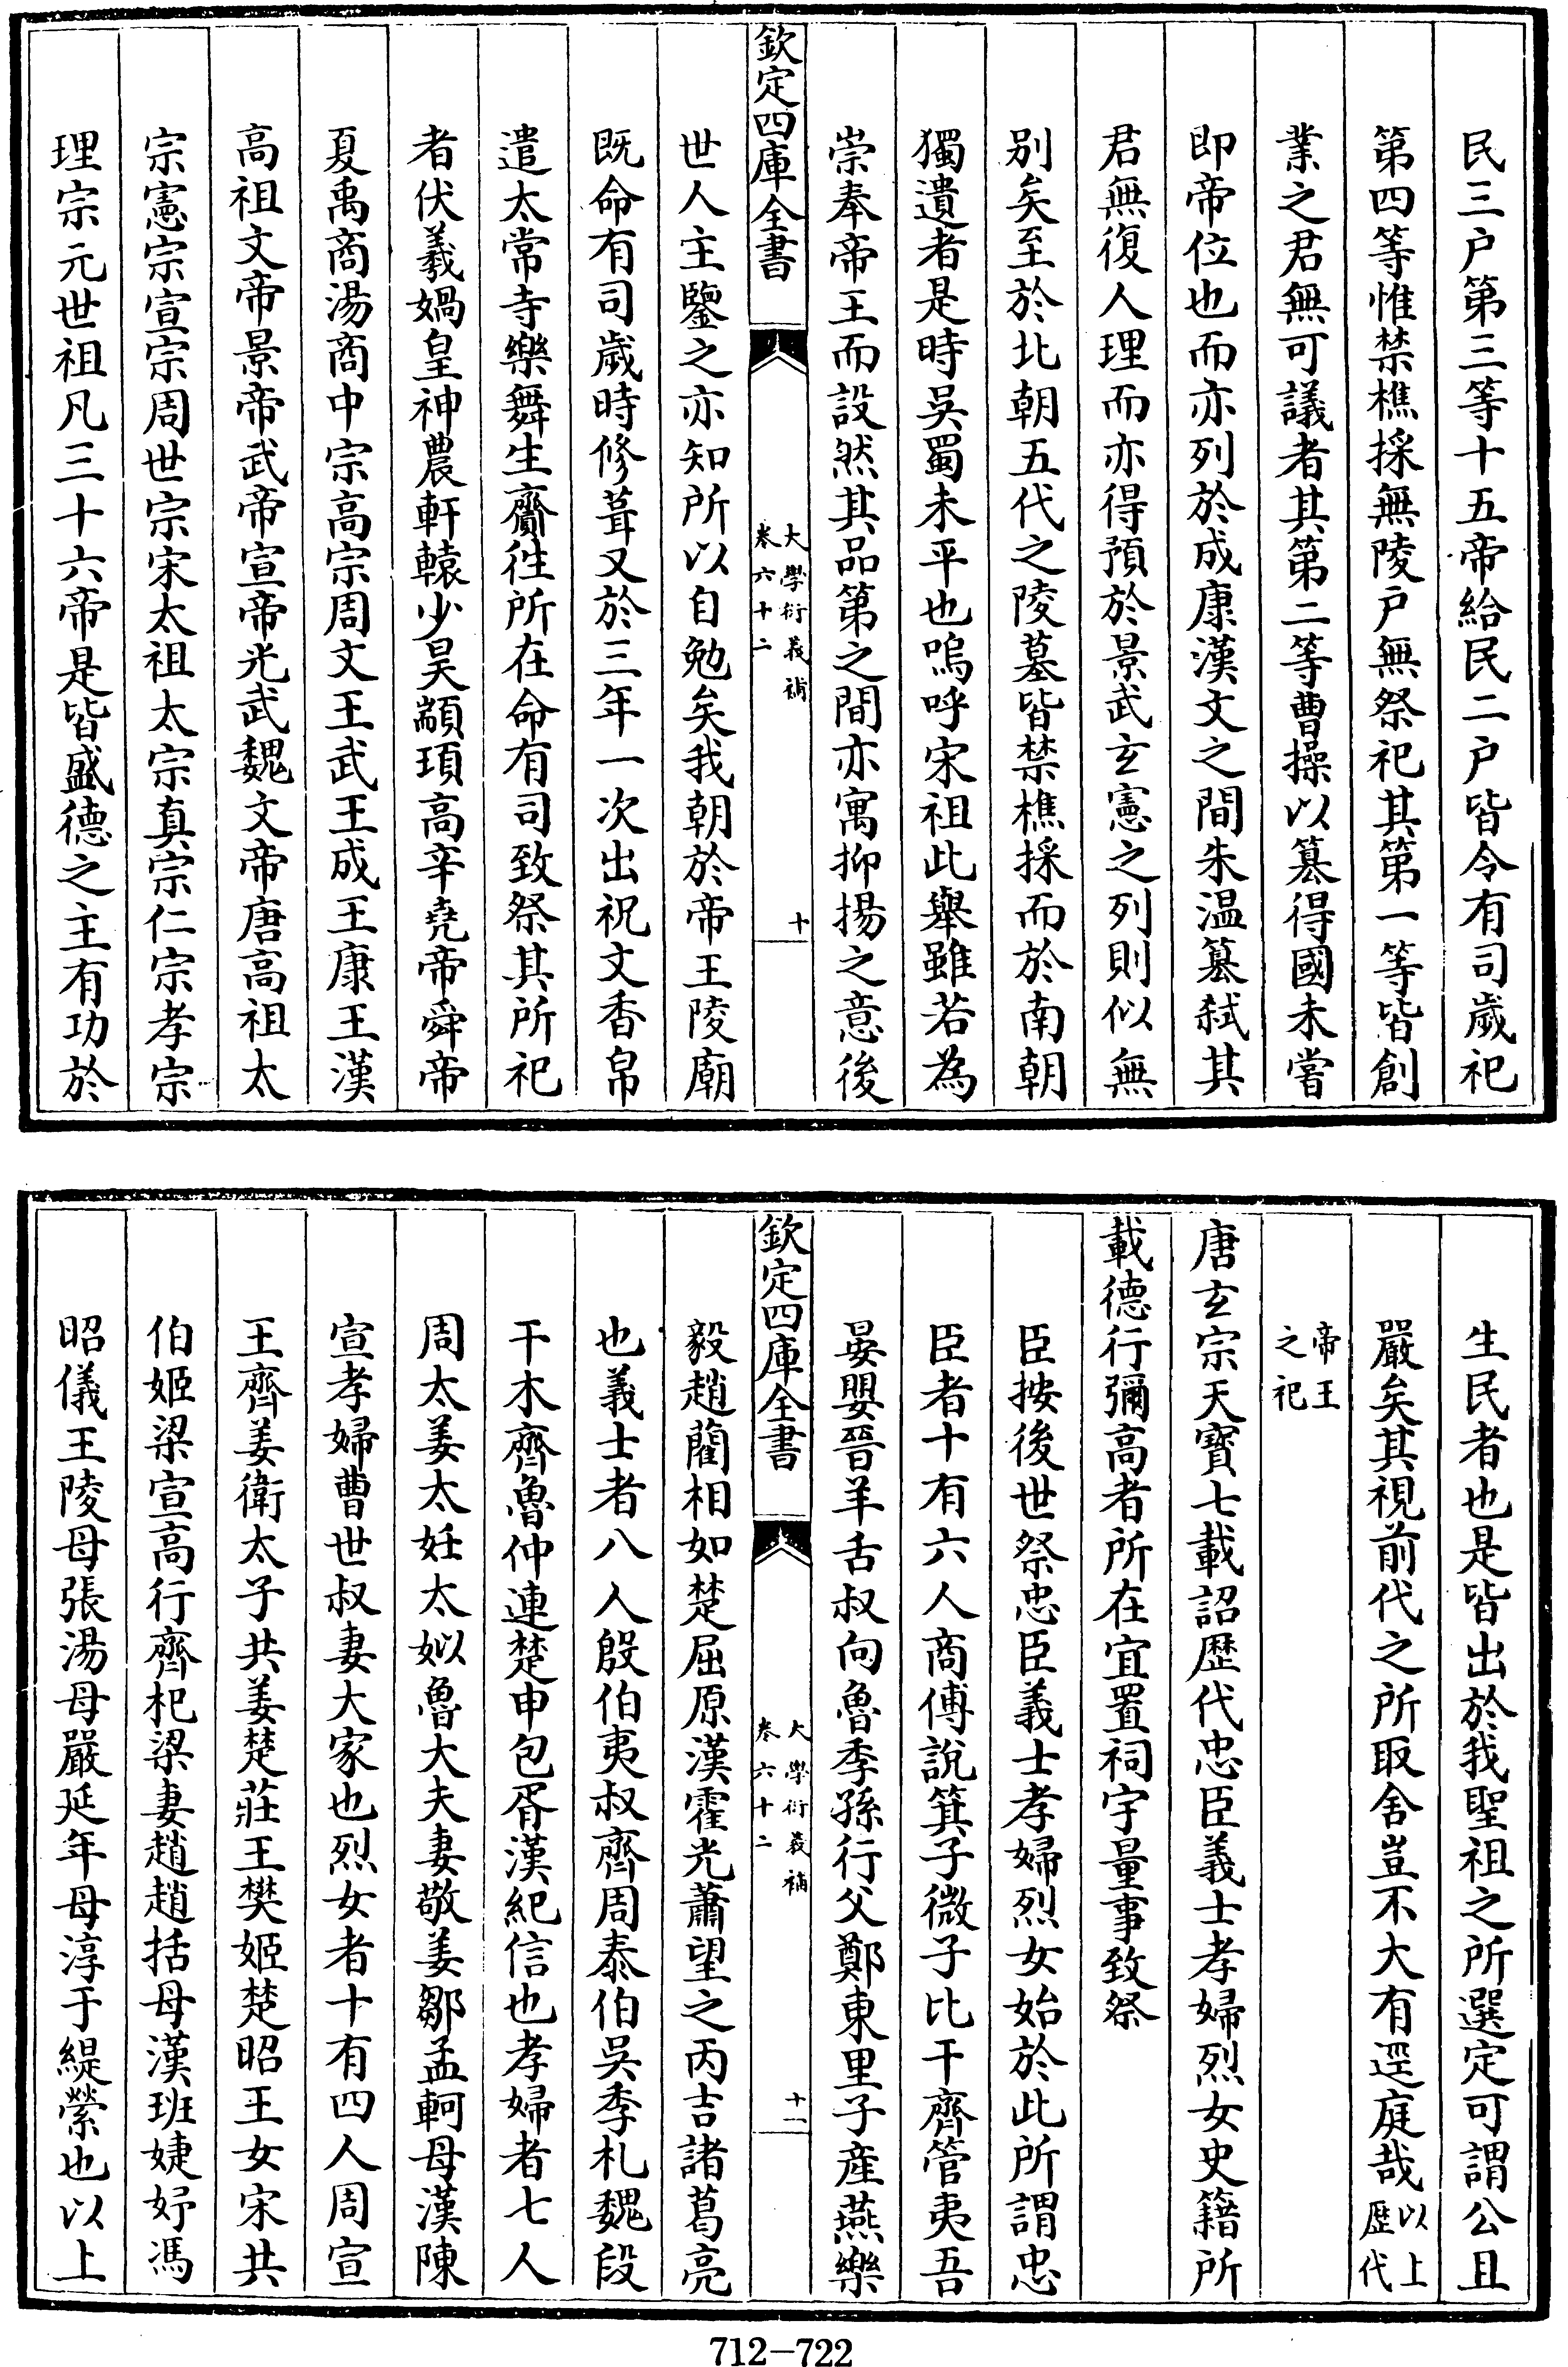 民三户第三等十五帝給民二户皆令有司歲祀
第四等惟禁樵採無陵户無祭祀其第一等皆創
業之君無可議者其第二等曹操以篡得國未嘗
即帝位也而亦列於成康漢文之間朱温篡弑其
君無復人理而亦得預於景武玄憲之列則似無
别矣至於北朝五代之陵墓皆禁樵採而於南朝
獨遺者是時吳蜀未平也嗚呼宋祖此舉雖若為
崇奉帝王而設然其品第之間亦寓抑揚之意後
欽定四庫全書
大學衍義補
卷六十二
十
世人主鑒之亦知所以自勉矣我朝於帝王陵廟
既命有司歲時修葺又於三年一次出祝文香帛
遣太常寺樂舞生齎徃所在命有司致祭其所祀
者伏羲媧皇神農軒轅少昊顓頊高辛堯帝舜帝
夏禹商湯商中宗高宗周文王武王成王康王漢
高祖文帝景帝武帝宣帝光武魏文帝唐高祖太
宗憲宗宣宗周世宗宋太祖太宗真宗仁宗孝宗
理宗元世祖凡三十六帝是皆盛德之主有功於
生民者也是皆出於我聖祖之所選定可謂公且
嚴矣其視前代之所取舍豈不大有逕庭哉以上
歴代
帝王
之祀
唐玄宗天寶七載詔歴代忠臣義士孝婦烈女史籍所
載德行彌高者所在宜置祠宇量事致祭
臣按後世祭忠臣義士孝婦烈女始於此所謂忠
臣者十有六人商傅說箕子微子比干齊管夷吾
晏嬰晉羊舌叔向魯季孫行父鄭東里子產燕樂
欽定四庫全書
大學衍義補
卷六十二
十一
毅趙藺相如楚屈原漢霍光蕭望之丙吉諸葛亮
也義士者八人殷伯夷叔齊周泰伯吳季札魏段
干木齊魯仲連楚申包胥漢紀信也孝婦者七人
周太姜太妊太姒魯大夫妻敬姜鄒孟軻母漢陳
宣孝婦曹世叔妻大家也烈女者十有四人周宣
王齊姜衛太子共姜楚莊王樊姬楚昭王女宋共
伯姬梁宣高行齊杞梁妻趙趙括母漢班婕妤馮
昭儀王陵母張湯母嚴延年母淳于緹縈也以上
712-722